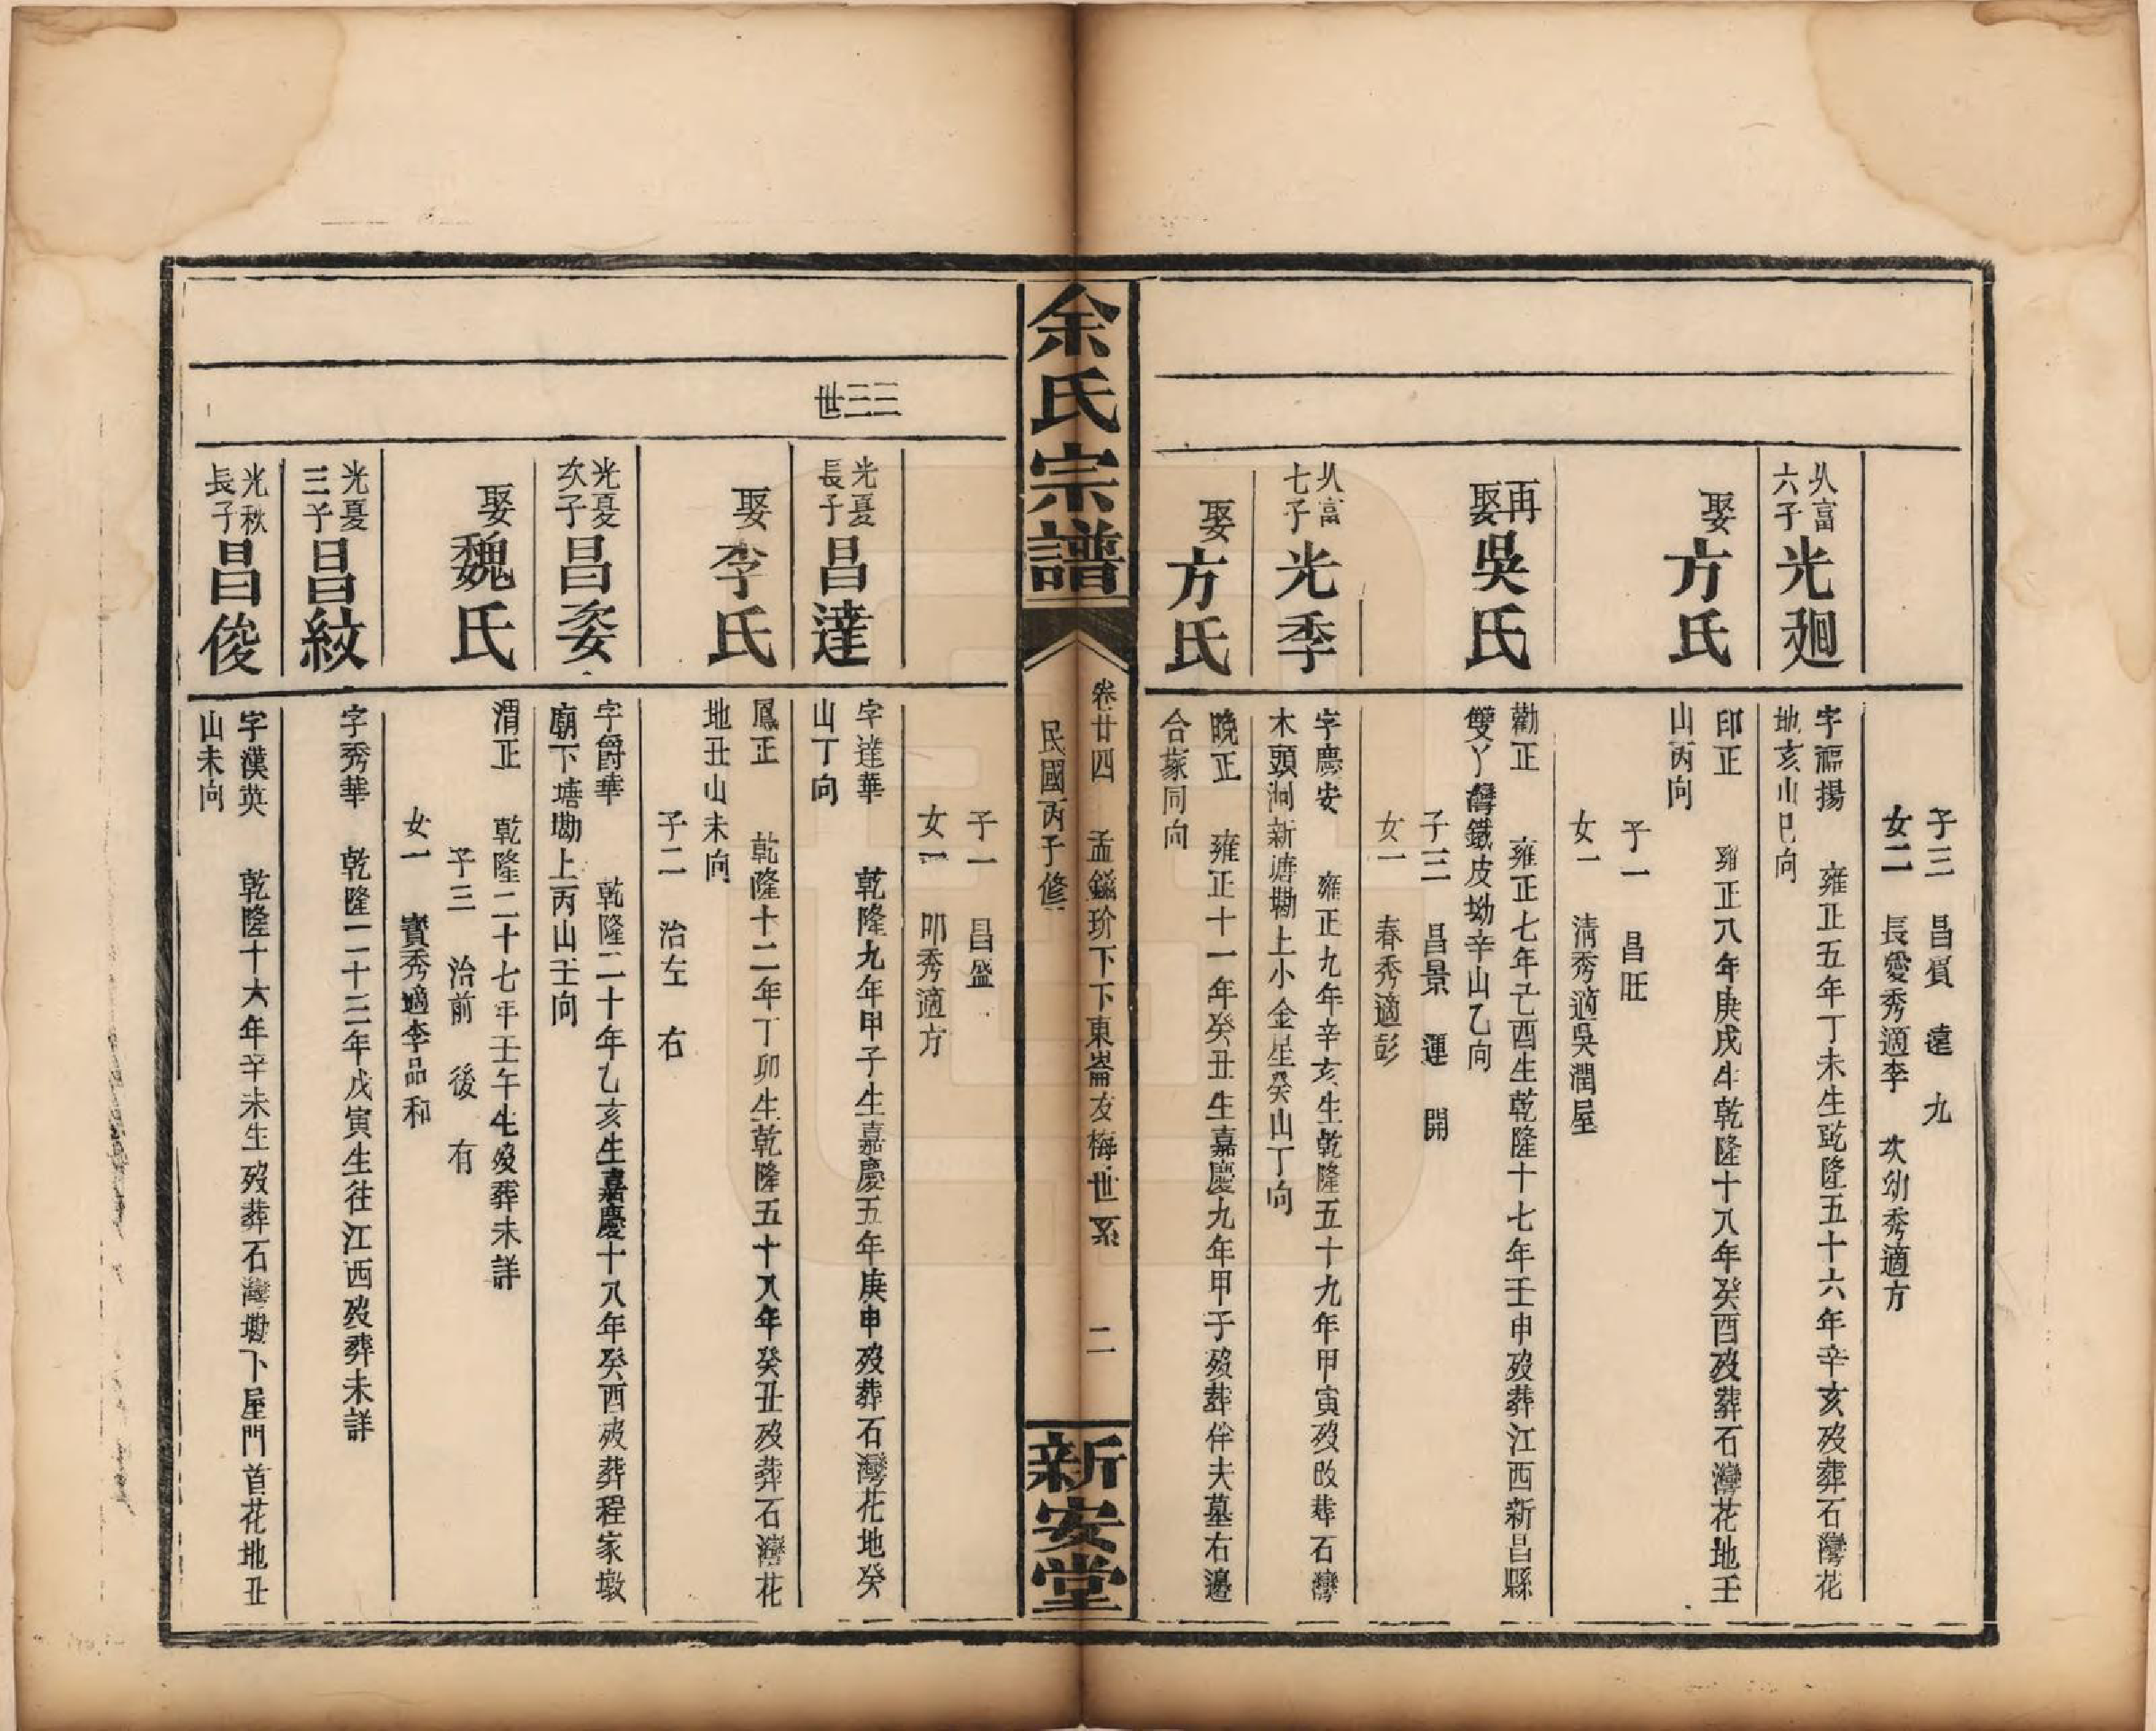 子三 昌貭 遠 九
女二 長愛秀適李 次幼秀適方
乆富
六子
光廻
字福揚 雍正五年丁未生乾隆五十六年辛亥歿葬石灣花
地亥山巳向
娶方氏
印正 雍正八年庚戌生乾隆十八年癸酉歿葬石灣花地壬
山丙向
子一 昌旺
女一 清秀適吳潤屋
再
娶
吳氏
勸正 雍正七年己酉生乾隆十七年壬申歿葬江西新昌縣
雙丫灣鐵皮坳辛山乙向
子三 昌景 運 開
女一 春秀適彭
乆富
七子
光季
字慶安 雍正九年辛亥生乾隆五十九年甲寅歿改葬石灣
木頭洞新塘墈上小金星癸山丁向
娶方氏
曉正 雍正十一年癸丑生嘉慶九年甲子歿葬伴夫墓右邊
合蒙同向
余氏宗譜
卷廿四 孟鎰玠下下東崙友梅世系 二
民國丙子修
新安堂
子一 昌盛
女一 叩秀適方
三三世
光夏
長子
昌達
字達華 乾隆九年甲子生嘉慶五年庚申歿葬石灣花地癸
山丁向
娶李氏
鳳正 乾隆十二年丁卯生乾隆五十八年癸丑歿葬石灣花
地丑山未向
子二 治左 右
光夏
次子
昌姿
字爵華 乾隆二十年乙亥生嘉慶十八年癸酉歿葬程家墩
廟下塘墈上丙山壬向
娶魏氏
渭正 乾隆二十七年壬午生歿葬未詳
子三 治前 後 有
女一 寳秀適李品和
光夏
三子
昌紋
字秀華 乾隆二十三年戊寅生往江西歿葬未詳
光秋
長子
昌俊
字漢英 乾隆十六年辛未生歿葬石灣墈下屋門首花地丑
山未向